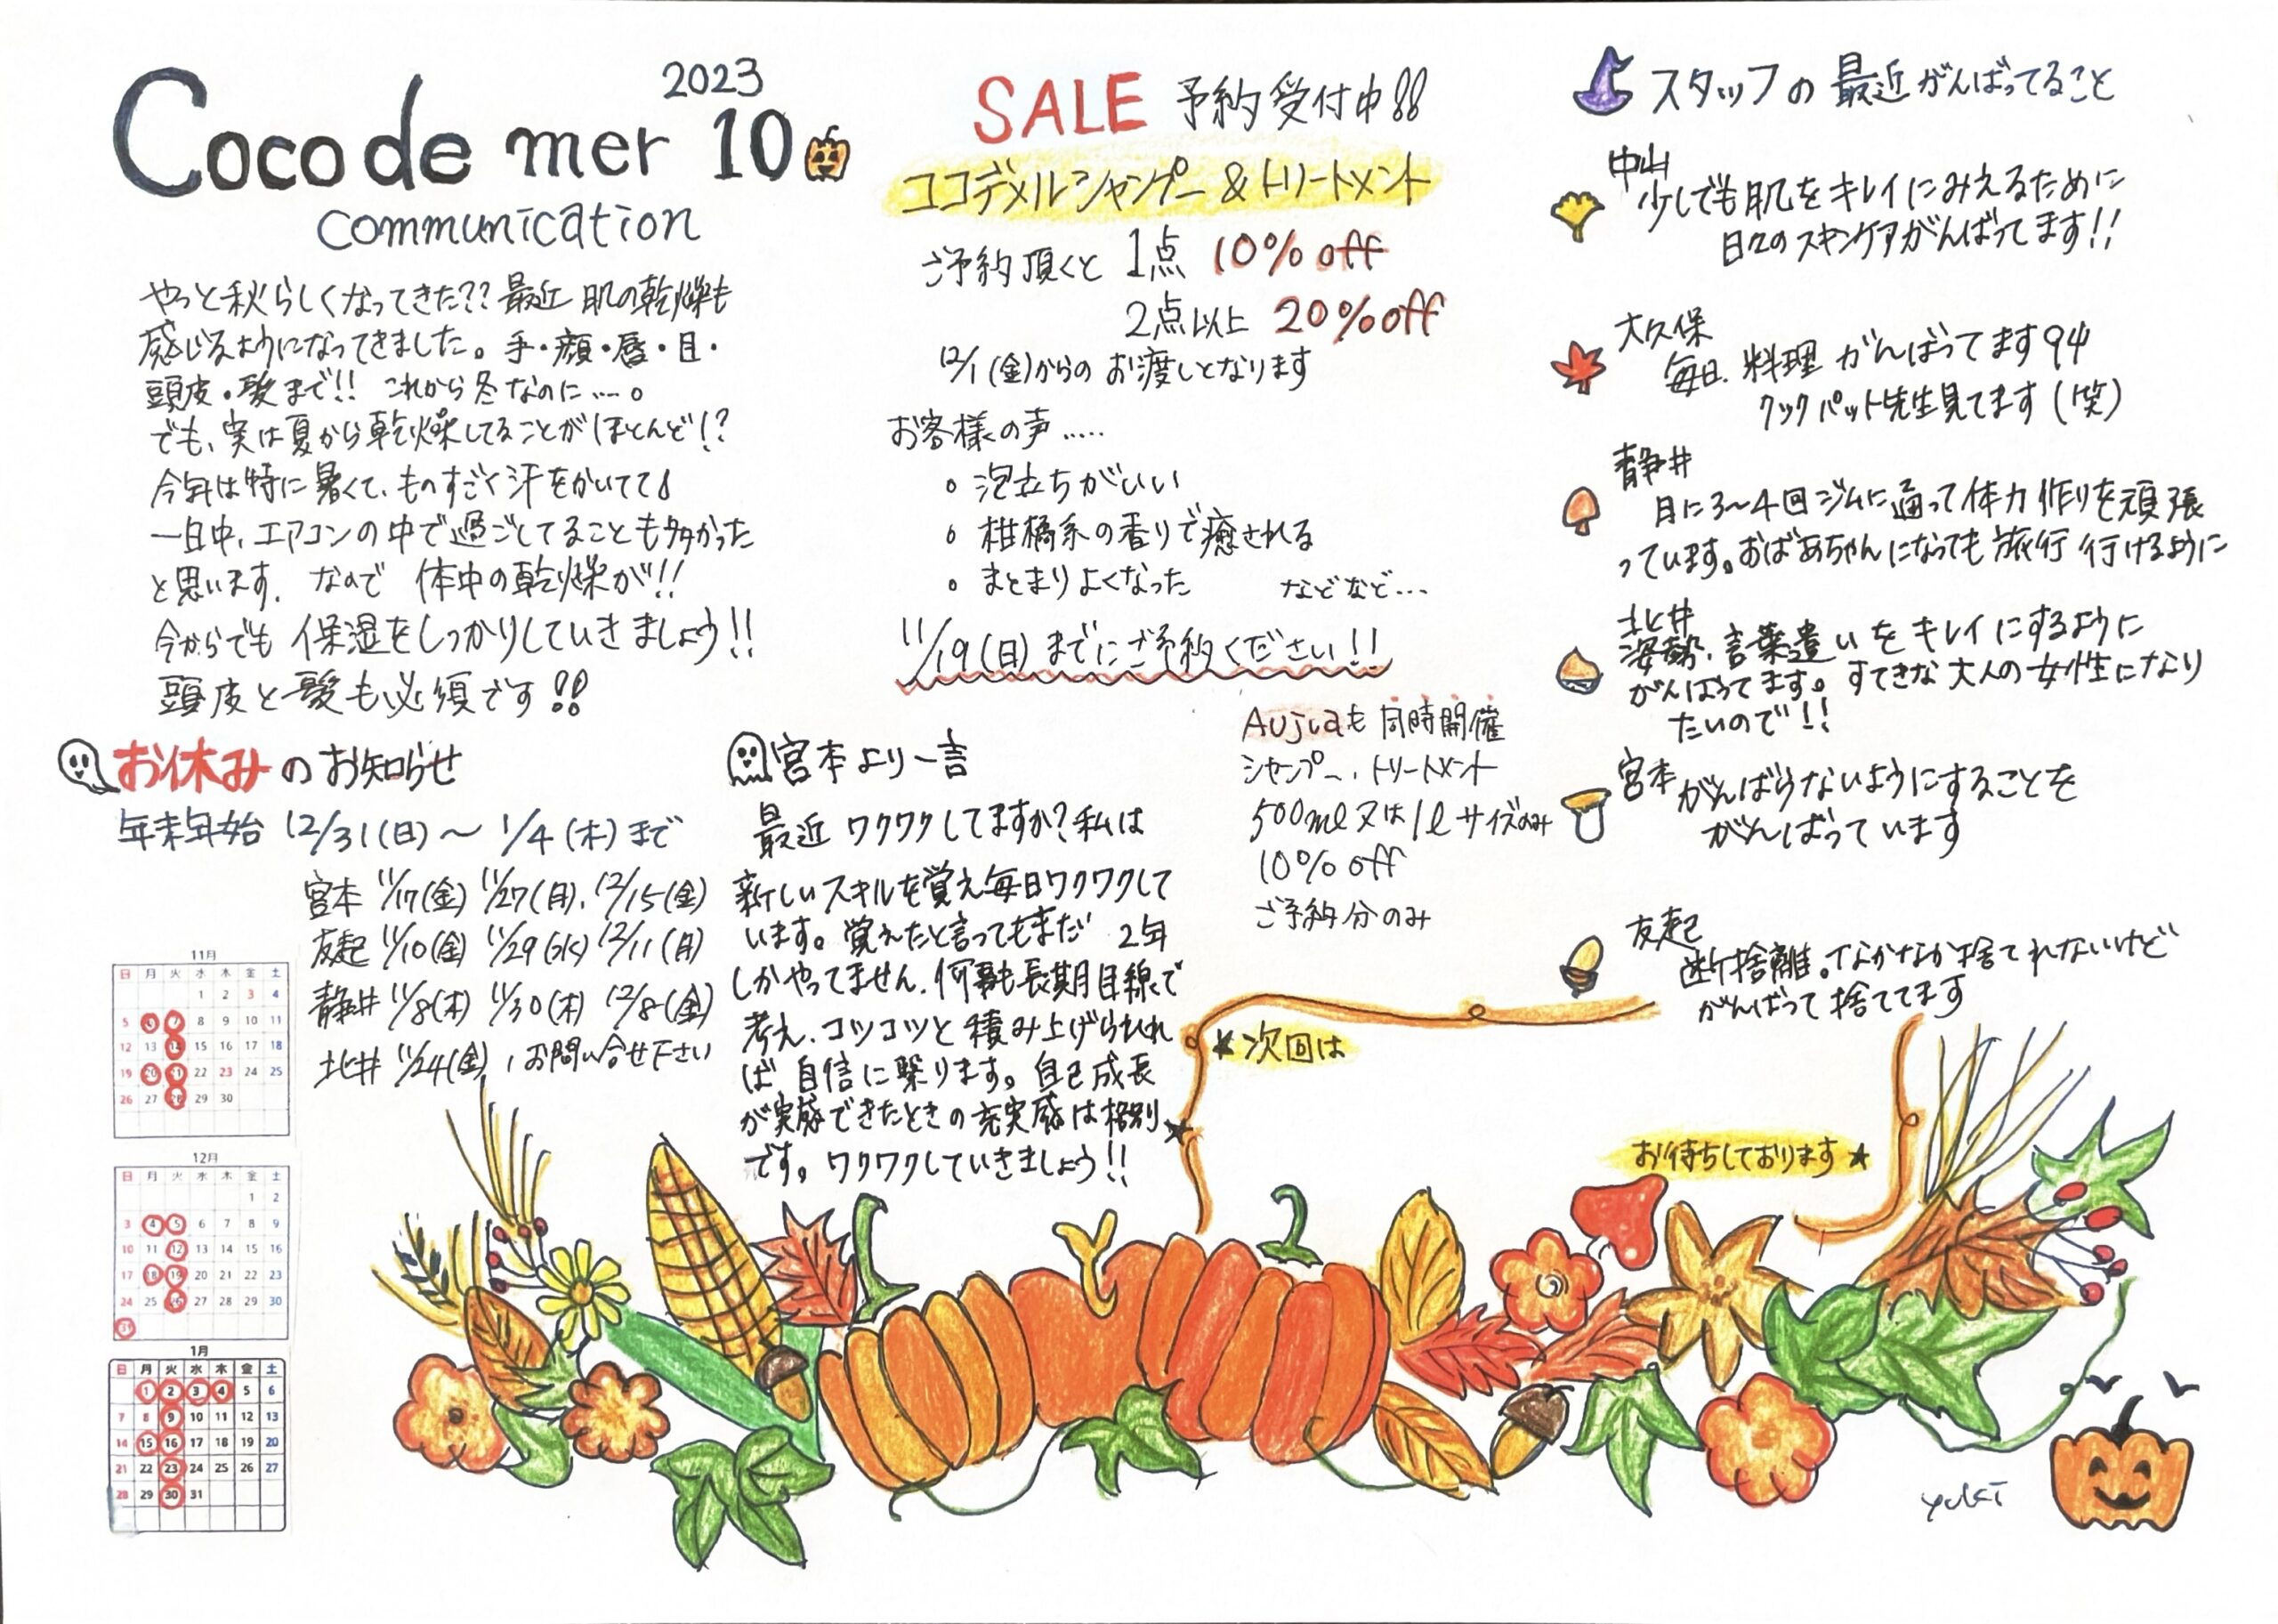 2023
Coco de mer 10
communication
やっと秋らしくなってきた?? 最近 肌の乾燥も
感じるようになってきました。手・顔・唇・目・
頭皮・髪まで!! これから冬なのに……。
でも、実は夏から乾燥してることがほとんど!?
今年は特に暑くて、ものすごく汗をかいてて
一日中、エアコンの中で過ごしてることも多かった
と思います。なので 体中の乾燥が!!
今からでも 保湿をしっかりしていきましょう!!
頭皮と髪も必須です!!
お休みのお知らせ
年末年始 12/31(日)〜 1/4(木)まで
宮本 11/17(金) 11/27(月)、12/15(金)
友起 11/10(金) 11/29(水) 12/11(月)
静井 11/8(木) 11/30(木) 12/8(金)
北井 11/24(金)、お問い合せ下さい
11月
日 月 火 水 木 金 土
1 2 3 4
5 6 7 8 9 10 11
12 13 14 15 16 17 18
19 20 21 22 23 24 25
26 27 28 29 30
12月
日 月 火 水 木 金 土
1 2
3 4 5 6 7 8 9
10 11 12 13 14 15 16
17 18 19 20 21 22 23
24 25 26 27 28 29 30
31
1月
日 月 火 水 木 金 土
1 2 3 4 5 6
7 8 9 10 11 12 13
14 15 16 17 18 19 20
21 22 23 24 25 26 27
28 29 30 31
SALE 予約受付中!!
ココデメルシャンプー&トリートメント
ご予約頂くと 1点 10%off
2点以上 20%off
12/1(金)からの お渡しとなります
お客様の声……
。泡立ちがいい
。柑橘系の香りで癒される
。まとまりよくなった などなど…
11/19(日)までにご予約ください!!
Aujuaも同時開催
シャンプー、トリートメント
500ml又は1lサイズのみ
10%off
ご予約分のみ
宮本より一言
最近 ワクワクしてますか?私は
新しいスキルを覚え毎日ワクワクして
います。覚えたと言ってもまだ 2年
しかやってません。何事も長期目線で
考え、コツコツと積み上げられれ
ば 自信に繋ります。自己成長
が実感できたときの充実感は格別
です。ワクワクしていきましょう!!
★次回は
お待ちしております★
スタッフの最近がんばってること
中山
少しでも肌をキレイにみえるために
日々のスキンケアがんばってます!!
大久保
毎日、料理 がんばってます
クックパット先生見てます(笑)
静井
月に3〜4回ジムに通って体力作りを頑張
っています。おばあちゃんになっても旅行 行けるように
北井
姿勢、言葉遣いをキレイにするように
がんばってます。すてきな大人の女性になり
たいので!!
宮本
がんばらないようにすることを
がんばっています
友起
断捨離。なかなか捨てれないけど
がんばって捨ててます
yuki